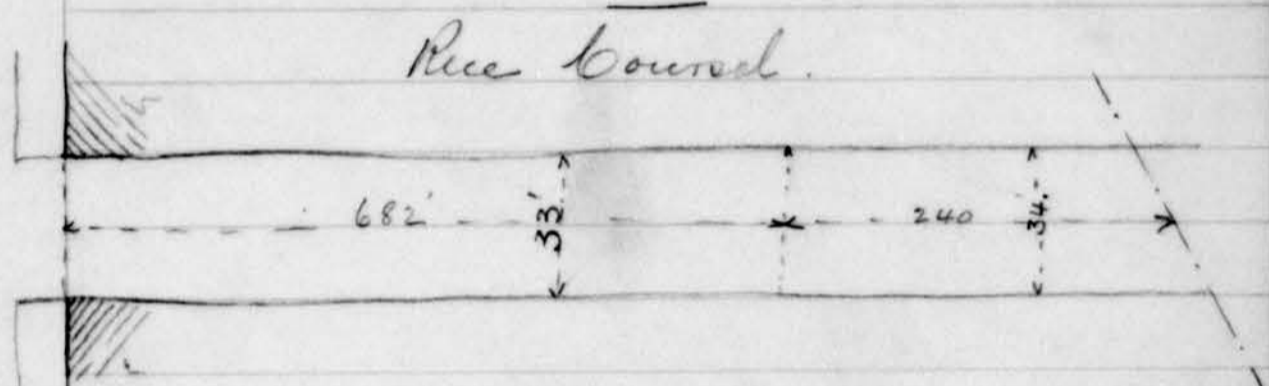 Rue Coursol.
682' 33' 240 34.